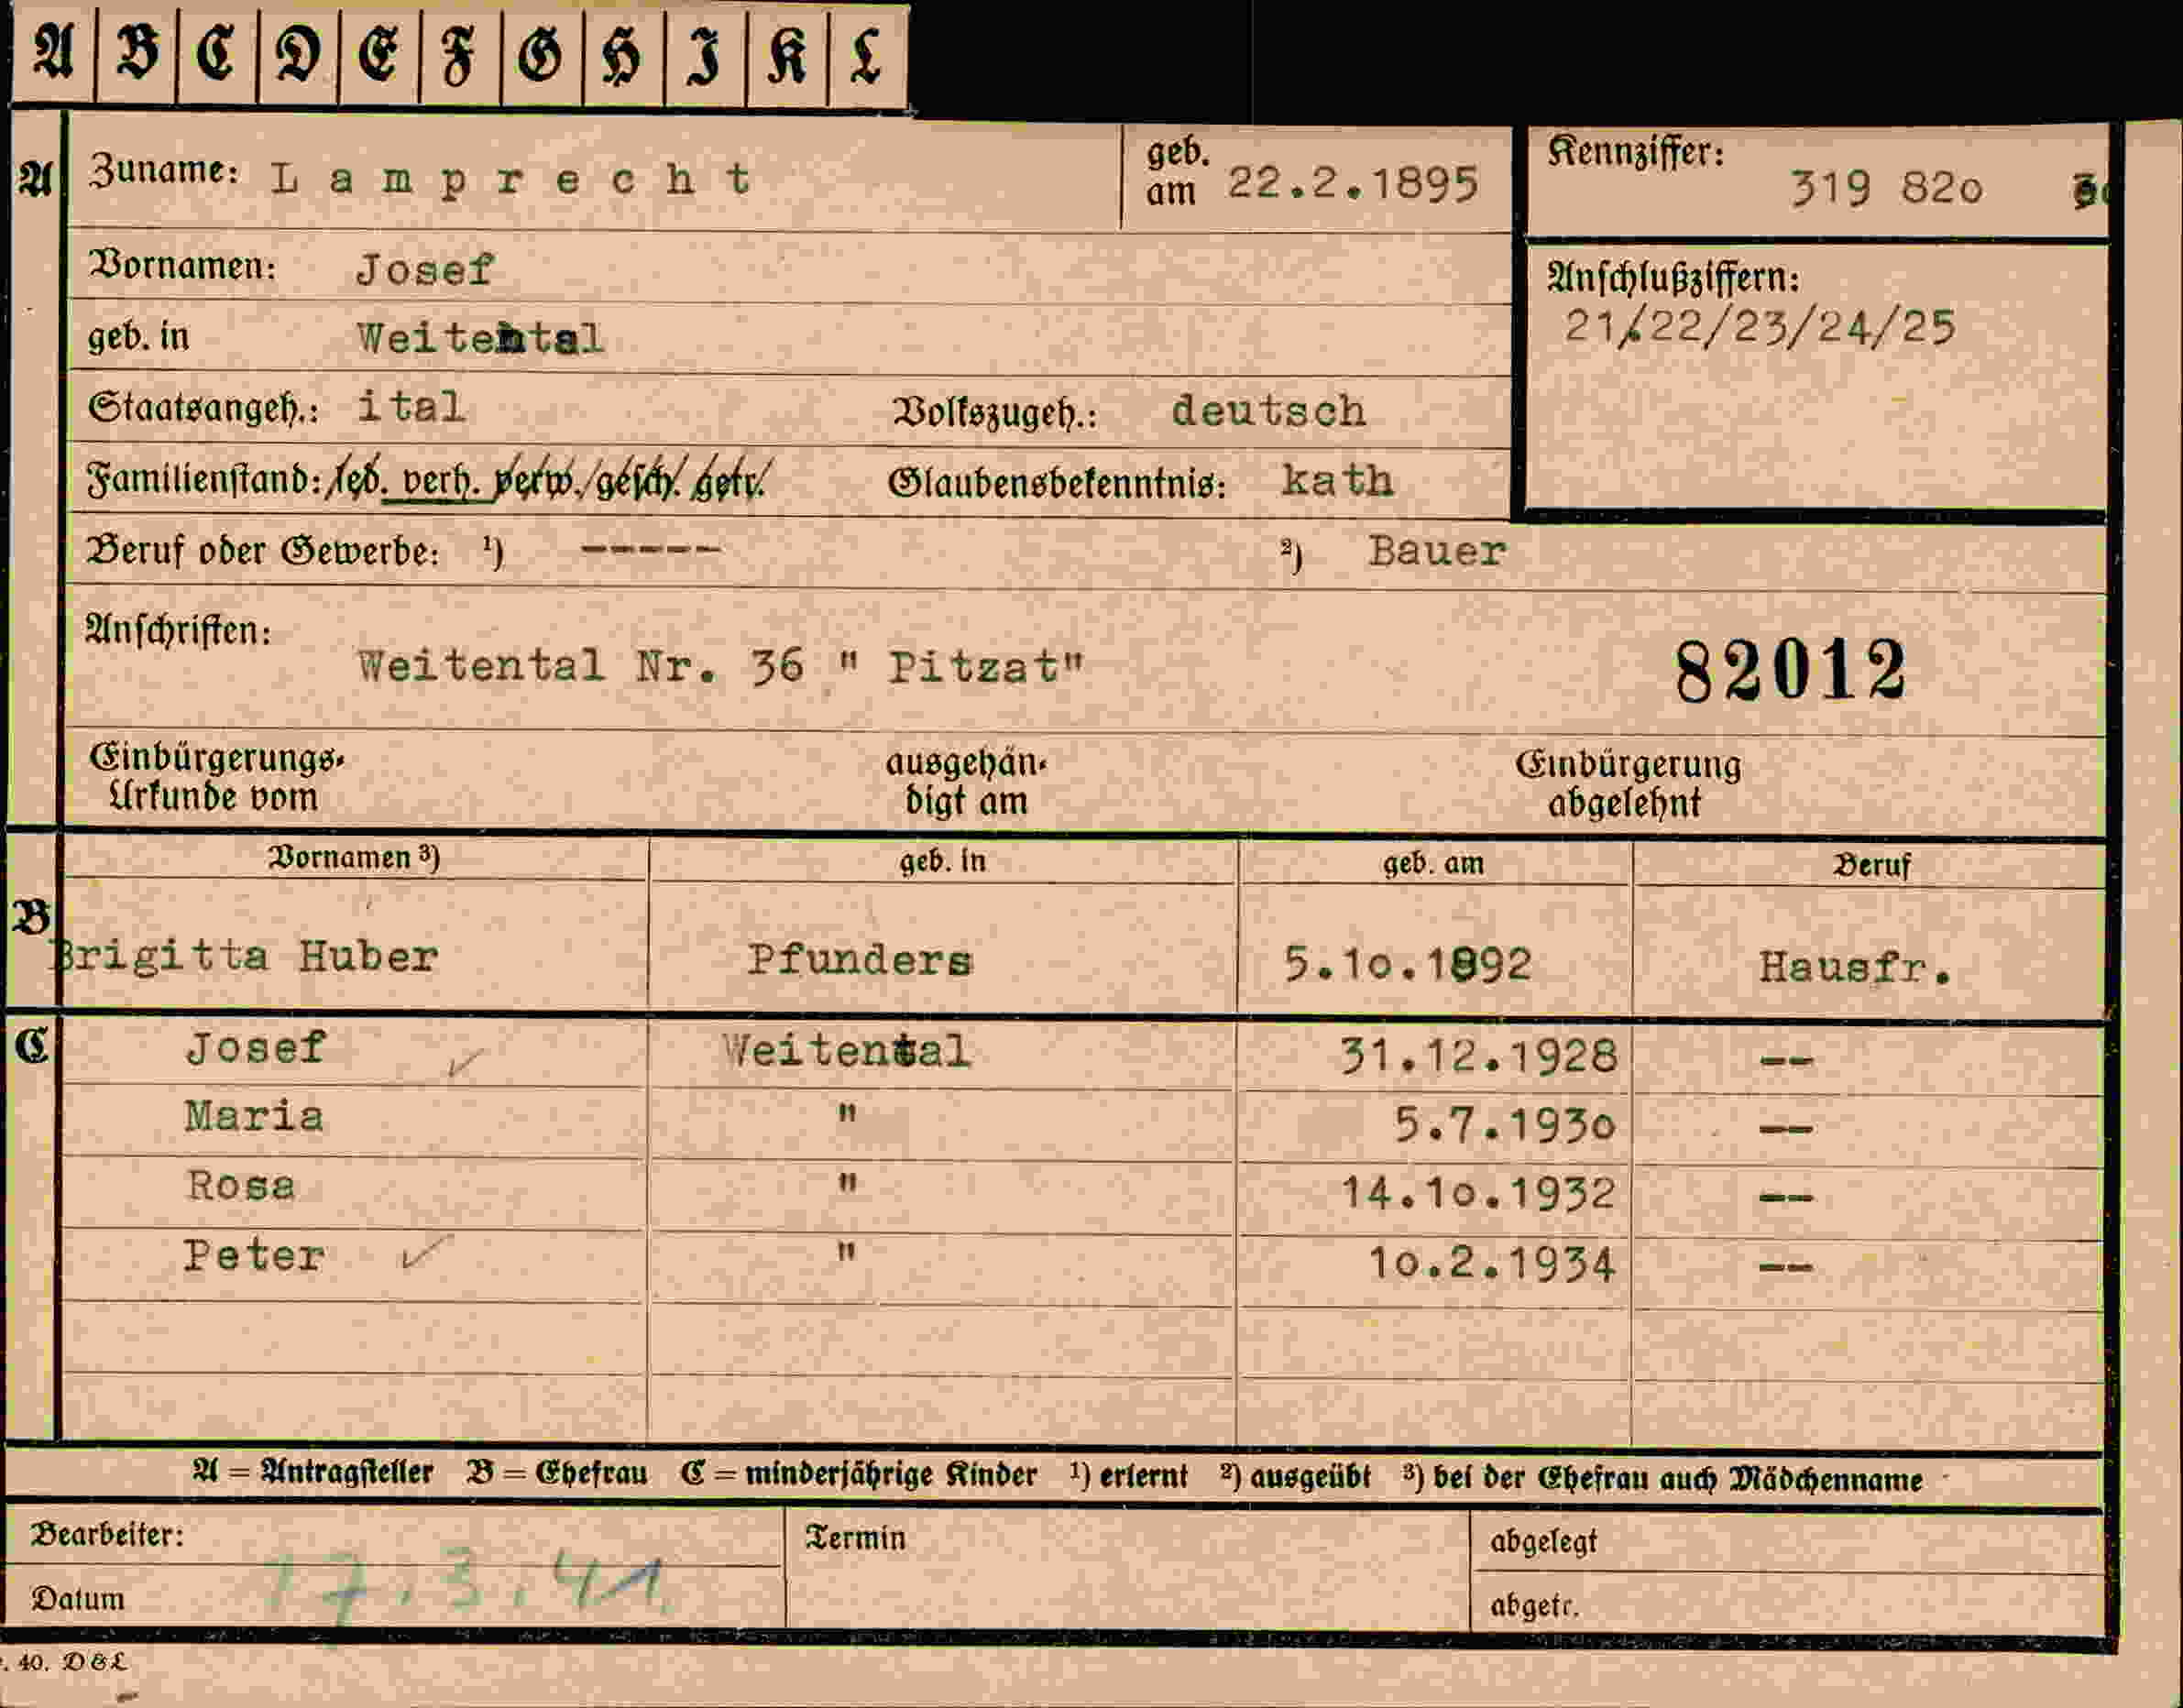 A B C D E F G H I K L
A Zuname: Lamprecht geb. am 22.2.1895 Kennziffer: 319 82o
Vornamen: Josef Anschlußziffern:
geb. in Weitental 21/22/23/24/25
Staatsangeh.: ital Volkszugeh.: deutsch
Familienstand: led. verh. verw. gesch. getr. Glaubensbekenntnis: kath
Beruf oder Gewerbe: ¹) ----- ²) Bauer
Anschriften:
Weitental Nr. 36 " Pitzat" 82012
Einbürgerungs- ausgehän- Einbürgerung
Urkunde vom digt am abgelehnt
Vornamen ³) geb. in geb. am Beruf
B Brigitta Huber Pfunders 5.1o.1892 Hausfr.
C Josef ✓ Weitental 31.12.1928 --
Maria " 5.7.193o --
Rosa " 14.1o.1932 --
Peter ✓ " 1o.2.1934 --
A = Antragsteller B = Ehefrau C = minderjährige Kinder ¹) erlernt ²) ausgeübt ³) bei der Ehefrau auch Mädchenname
Bearbeiter: Termin abgelegt
Datum 17.3.41. abgetr.
. 40. D & L